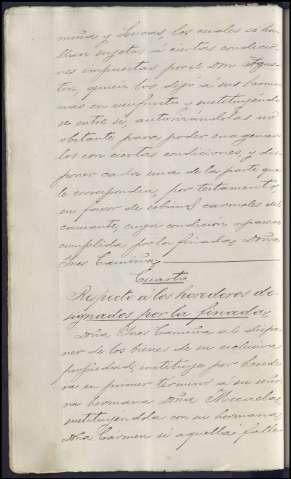 minas y Lucas, los cuales se ha-
llan sujetos á ciertas condicio-
nes impuestas por el Don Agus-
tin, quien los dejó á sus herma-
nas en usufructo y sustituyendo-
se entre si, autorizandolas no
obstante para poder enagenar
los con ciertas condiciones y dis-
poner cada una de la parte que
le corresponda, por testamento,
en favor de carnales del
causante, cuya condicion aparece
cumplida por la finada Doña
Ines Camiña.
Cuarto
Respecto a los herederos de-
signados por la finada,
Doña Ines Camiña al dispo-
ner de los bienes de su esclusiva
propiedad, instituye por herede-
ra en primer termino a su seño-
ra hermana Doña Micaela,
sustituyendola con su hermana
Doña Carmen si aquella falle-